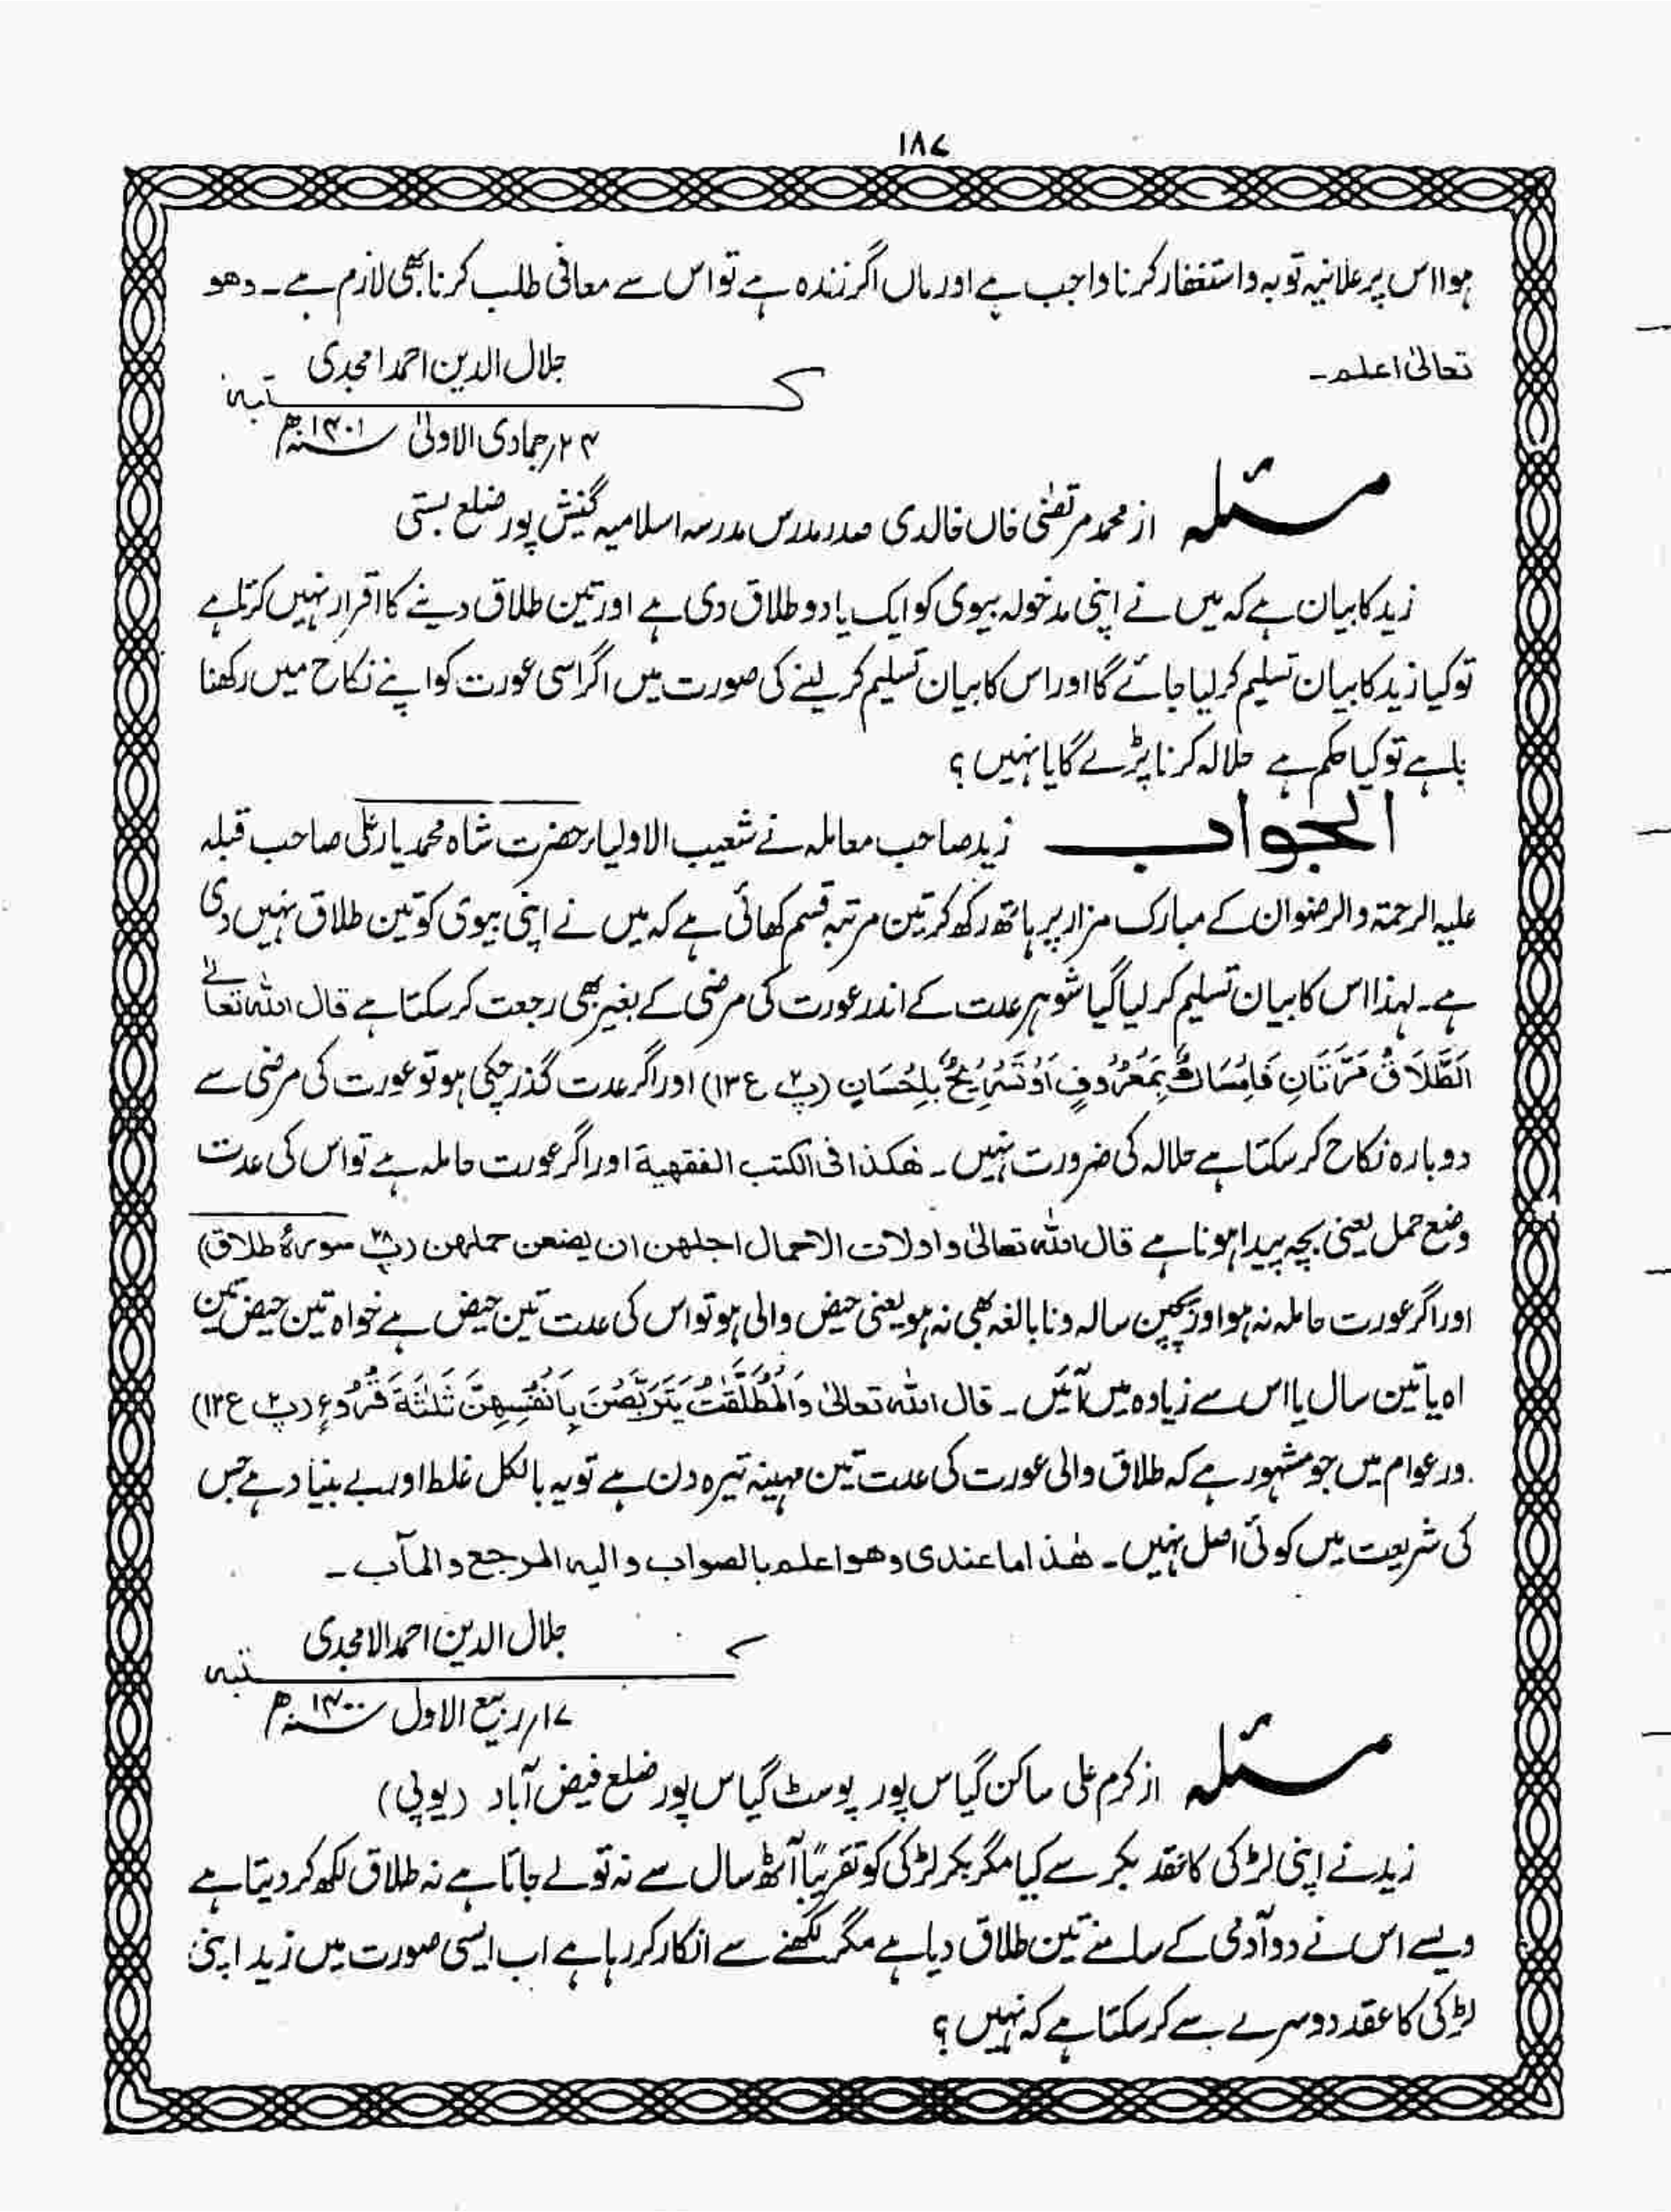 ۱۸۷
ہوا اس پر علانیہ توبہ و استغفار کرنا واجب ہے اور ماں اگر زندہ ہے تو اس سے معافی طلب کرنا بھی لازم ہے۔ وھو
تعالیٰ اعلم۔
جلال الدین احمد امجدی
کتبہ
۲۴؍ جمادی الاولیٰ ۱۴۰۱ھ
مسئلہ از محمد مرتضیٰ خاں خالدی صدر مدرس مدرسہ اسلامیہ گنیش پور ضلع بستی
زید کا بیان ہے کہ میں نے اپنی مدخولہ بیوی کو ایک یا دو طلاق دی ہے اور تین طلاق دینے کا اقرار نہیں کرتا ہے
تو کیا زید کا بیان تسلیم کر لیا جائے گا اور اس کا بیان تسلیم کر لینے کی صورت میں اگر اسی عورت کو اپنے نکاح میں رکھنا
چاہے تو کیا حکم ہے حلالہ کرنا پڑے گا یا نہیں؟
الجواب زید صاحب معاملہ نے شعیب الاولیاء حضرت شاہ محمد یار علی صاحب قبلہ
علیہ الرحمۃ والرضوان کے مبارک مزار پر ہاتھ رکھ کر تین مرتبہ قسم کھائی ہے کہ میں نے اپنی بیوی کو تین طلاق نہیں دی
ہے۔ لہذا اس کا بیان تسلیم کر لیا گیا شوہر عدت کے اندر عورت کی مرضی کے بغیر بھی رجعت کر سکتا ہے قال اللہ تعالےٰ
اَلطَّلَاقُ مَرَّتَانِ فَاِمْسَاكٌ بِمَعْرُوْفٍ اَوْ تَسْرِيْحٌ بِاِحْسَانٍ (پ۲ ع۱۳) اور اگر عدت گذر چکی ہو تو عورت کی مرضی سے
دوبارہ نکاح کر سکتا ہے حلالہ کی ضرورت نہیں۔ ھٰکذا فی الکتب الفقھیۃ اور اگر عورت حاملہ ہے تو اس کی عدت
وضع حمل یعنی بچہ پیدا ہونا ہے قال اللہ تعالیٰ و اولات الاحمال اجلھن ان یضعن حملھن (پ۲۸ سورۂ طلاق)
اور اگر عورت حاملہ نہ ہو اور پچپن سالہ و نابالغہ بھی نہ ہو یعنی حیض والی ہو تو اس کی عدت تین حیض ہے خواہ تین حیض تین
اہ یا تین سال یا اس سے زیادہ میں آئیں۔ قال اللہ تعالیٰ وَالْمُطَلَّقٰتُ يَتَرَبَّصْنَ بِاَنْفُسِهِنَّ ثَلٰثَةَ قُرُوْءٍ (پ۲ ع۱۲)
ور عوام میں جو مشہور ہے کہ طلاق والی عورت کی عدت تین مہینہ تیرہ دن ہے تو یہ بالکل غلط اور بے بنیاد ہے جس
کی شریعت میں کوئی اصل نہیں۔ ھٰذا ما عندی وھو اعلم بالصواب و الیہ المرجع و المآب۔
جلال الدین احمد الامجدی
کتبہ
۱۷؍ ربیع الاول ۱۴۰۰ھ
مسئلہ از کرم علی ساکن گیاس پور پوسٹ گیاس پور ضلع فیض آباد (یوپی)
زید نے اپنی لڑکی کا عقد بکر سے کیا مگر بکر لڑکی کو تقریباً آٹھ سال سے نہ تو لے جاتا ہے نہ طلاق لکھ کر دیتا ہے
ویسے اس نے دو آدمی کے سامنے تین طلاق دیا ہے مگر لکھنے سے انکار کر رہا ہے اب ایسی صورت میں زید اپنی
لڑکی کا عقد دوسرے سے کر سکتا ہے کہ نہیں؟